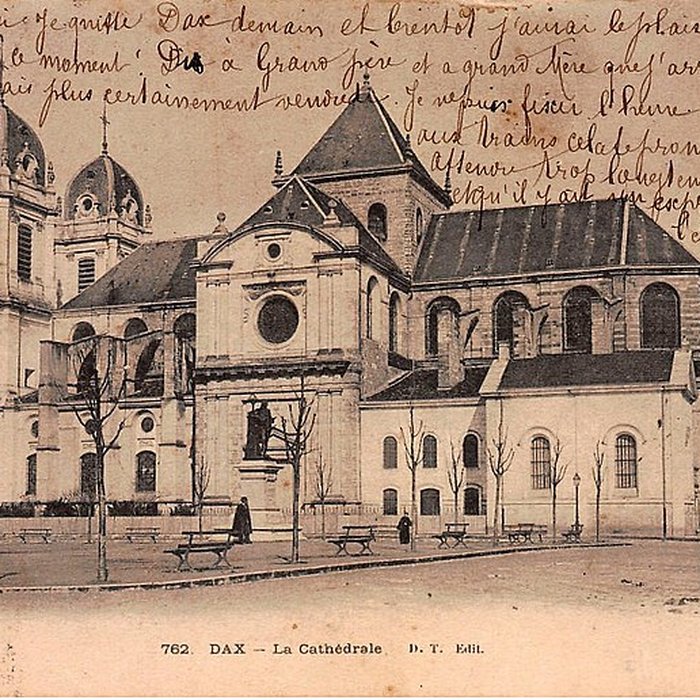 Je quitte Dax demain et bientôt j'aurai le plais
ce moment. Dis à Grand père et a grand Mère que j'arr
ais plus certainement vendredi. Je ne puis fixer l'heure
aux trains cela te
attendre trop longtem
et qu'il y ait un
762. DAX – La Cathédrale. D. T. Edit.